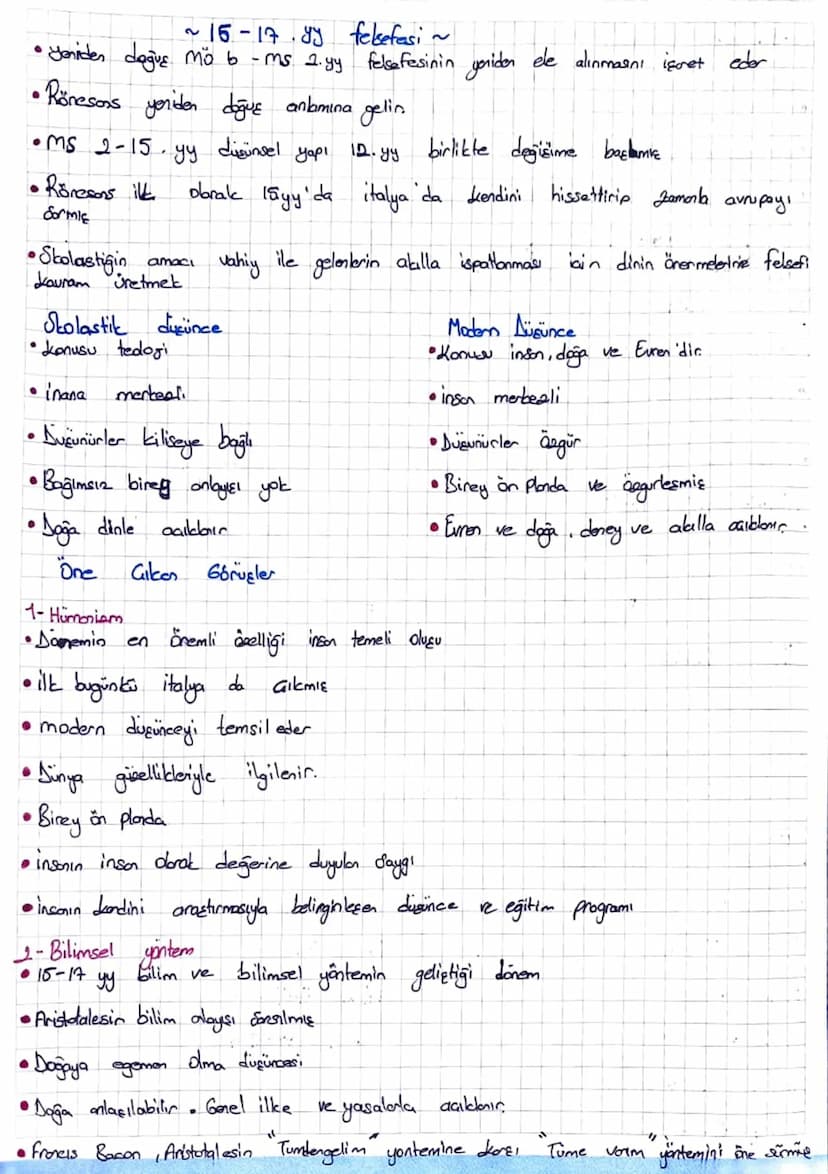 ~ 15-17.yy felsefesi ~
• yeniden doğuş MÖ 6 - MS 2.yy felsefesinin yeniden ele alınmasnı işaret eder
• Rönesans yeniden doğuş anlamına gelir.
• MS 2-15.yy düşünsel yapı 12.yy birlikte değişime başlamış
• Rönesans ilk olarak 15yy'da italya'da kendini hissettirip zamanla avrupayı
sarmış
• Skolastiğin amacı vahiy ile gelenlerin akılla ispatlanması için dinin önermelerine felsefi
kavram üretmek
Skolastik düşünce
• konusu teoloji
• inanç merkezli
• Düşünürler kiliseye bağlı
• Bağımsız birey anlayışı yok
• Doğa dinle açıklanır
Modern Düşünce
• Konusu insan, doğa ve Evren'dir.
• insan merkezli
• Düşünürler özgür
• Birey ön planda ve özgürleşmiş
• Evren ve doğa, deney ve akılla açıklanır.
Öne Çıkan Görüşler
1- Hümanizm
• Dönemin en önemli özelliği insan temeli oluşu
• ilk bugünkü italya da çıkmış
• modern düşünceyi temsil eder
• Dünya güzellikleriyle ilgilenir.
• Birey ön planda
• insanın insan olarak değerine duyulan saygı
• insanın kendini araştırmasıyla belirginleşen düşünce ve eğitim programı
2- Bilimsel yöntem
• 15-17 yy bilim ve bilimsel yöntemin geliştiği dönem
• Aristotalesin bilim alayışı sarsılmış
• Doğaya egemen olma düşüncesi
• Doğa anlaşılabilir. Genel ilke ve yasalarla açıklanır.
• Francis Bacon, Aristotalesin "Tümdengelim" yöntemine karşı "Tüme varım" yöntemini öne sürmüş